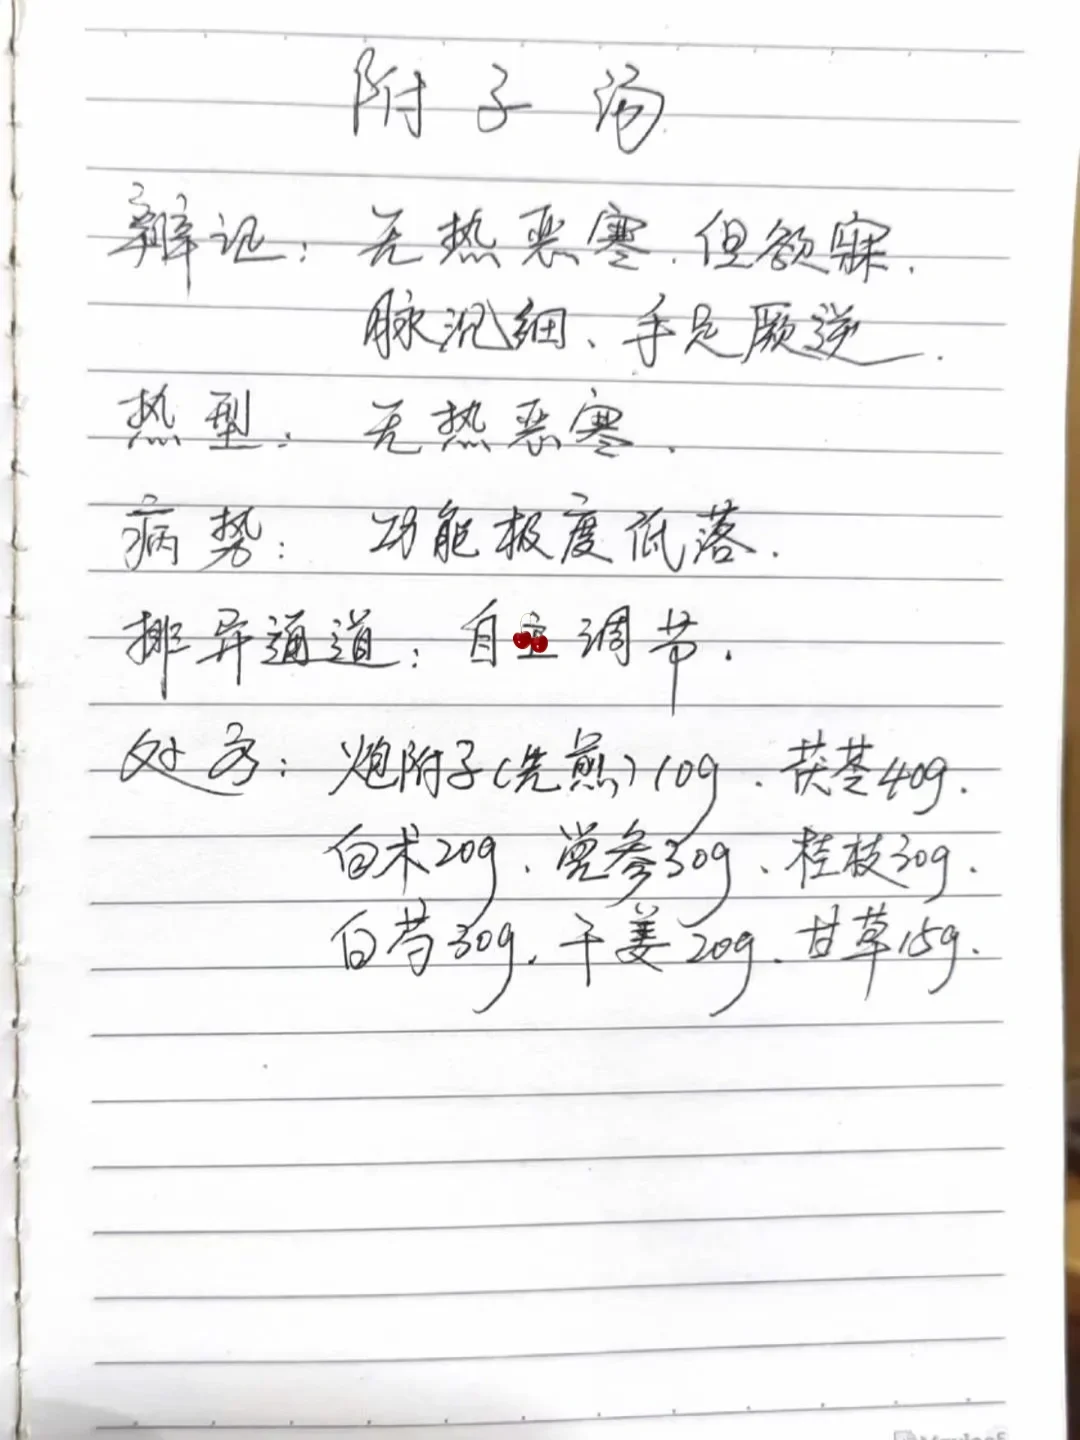 附子汤
辩证：无热恶寒、但欲寐、
脉沉细、手足厥逆.
热型：无热恶寒.
病势：功能极度低落.
排异通道：自主调节.
处方：炮附子(先煎)10g、茯苓40g、
白术20g、党参30g、桂枝30g、
白芍30g、干姜20g、甘草15g.